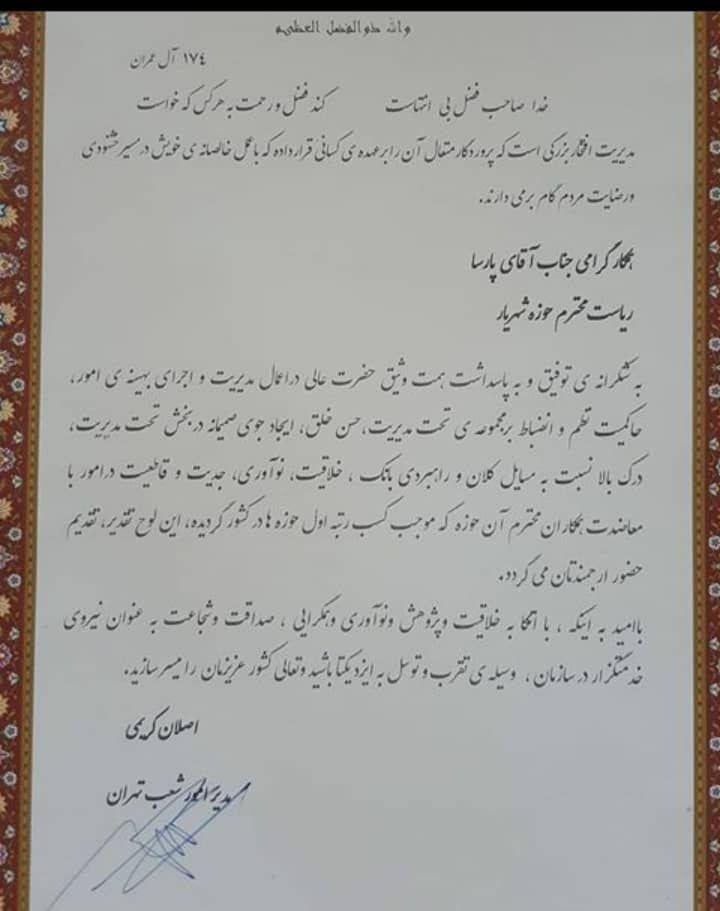 والله ذوالفضل العظیم
۱۷۴ آل عمران
خدا صاحب فضل بی انتهاست کند فضل و رحمت به هرکس که خواست
مدیریت افتخار بزرگی است که پروردگار متعال آن را برعهده ی کسانی قرار داده که با عمل خالصانه ی خویش در مسیر خشنودی
و رضایت مردم گام برمی دارند.
همکار گرامی جناب آقای پارسا
ریاست محترم حوزه شهریار
به شکرانه ی توفیق و به پاسداشت همت وثیق حضرت عالی در اعمال مدیریت و اجرای بهینه ی امور،
حاکمیت نظم و انضباط بر مجموعه ی تحت مدیریت، حسن خلق، ایجاد جوی صمیمانه در بخش تحت مدیریت،
درک بالا نسبت به مسایل کلان و راهبردی بانک ، خلاقیت، نوآوری، جدیت و قاطعیت در امور با
معاضدت همکاران محترم آن حوزه که موجب کسب رتبه اول حوزه ها در کشور گردیده، این لوح تقدیر، تقدیم
حضور ارجمندتان می گردد.
باامید به اینکه ، با اتکا به خلاقیت وپژوهش ونوآوری وهمگرایی ، صداقت وشجاعت به عنوان نیروی
خدمتگزار در سازمان ، وسیله ی تقرب و توسل به ایزد یکتا باشید وتعالی کشور عزیزمان را میسر سازید.
اصلان کریمی
مدیر امور شعب تهران